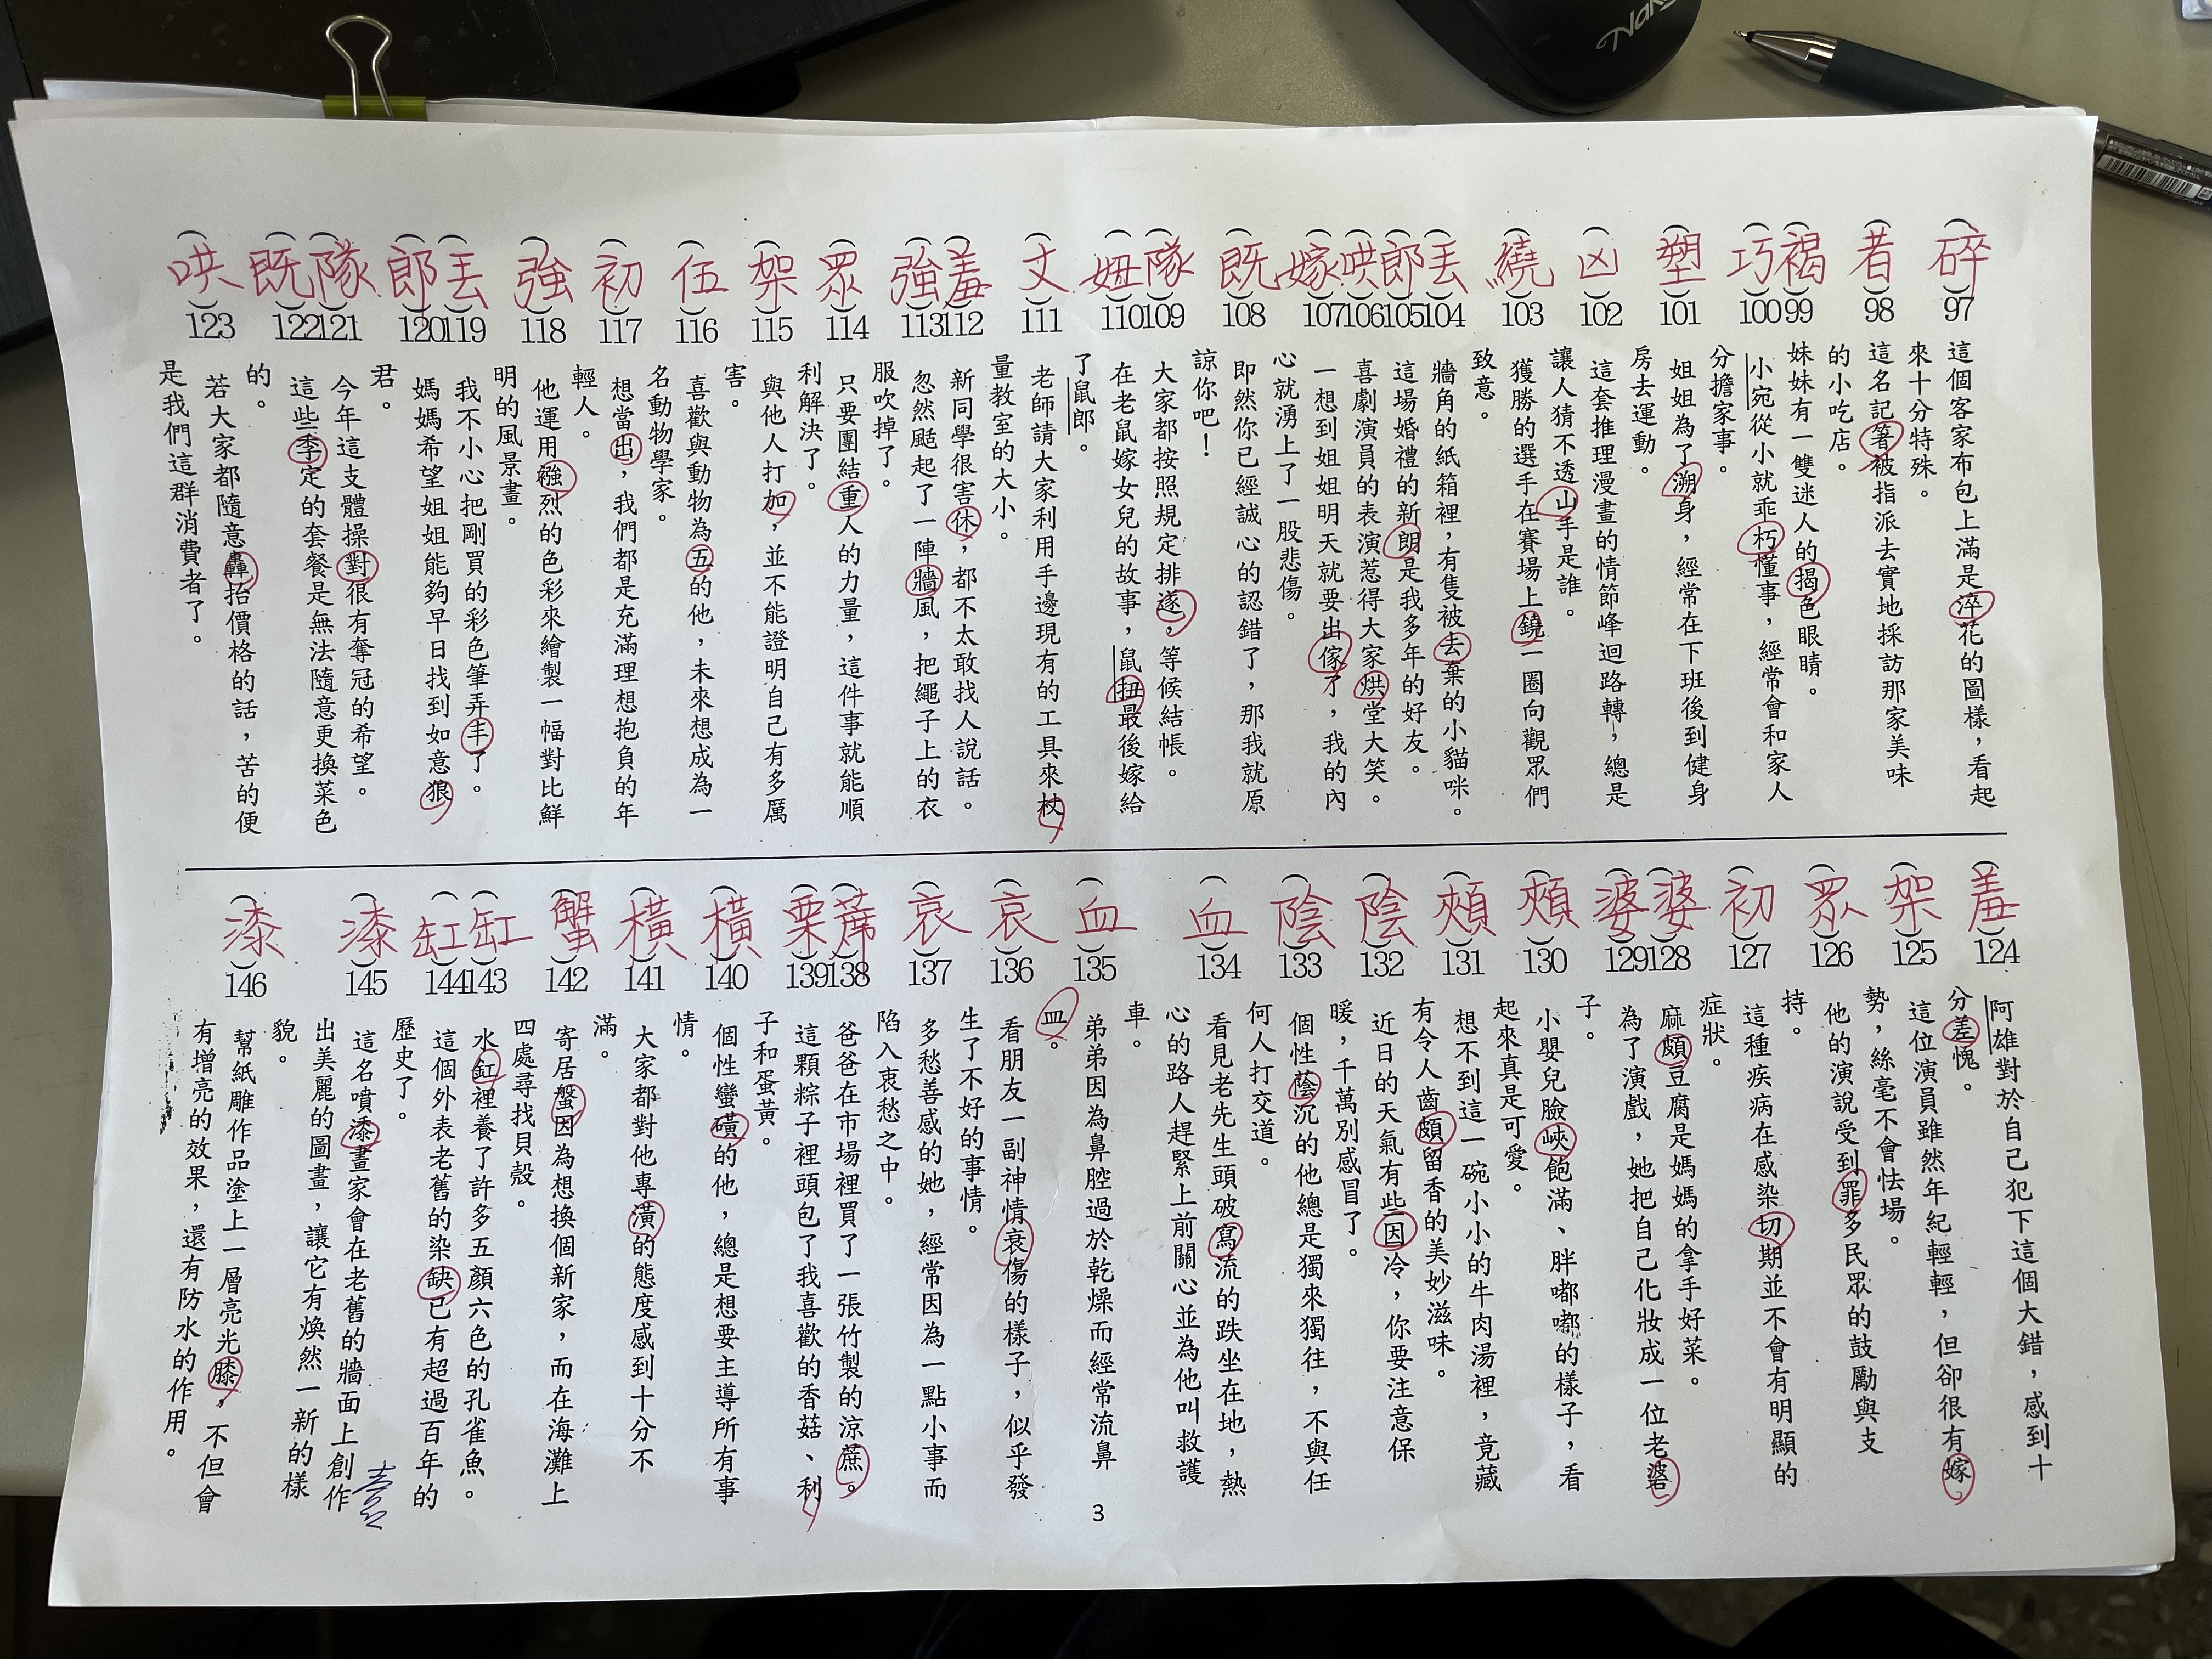 （碎）97 這個客家布包上滿是淬花的圖樣，看起
來十分特殊。
（者）98 這名記箸被指派去實地採訪那家美味
的小吃店。
（褐）99 妹妹有一雙迷人的揭色眼睛。
（巧）100 小宛從小就乖朽懂事，經常會和家人
分擔家事。
（塑）101 姐姐為了溯身，經常在下班後到健身
房去運動。
（凶）102 這套推理漫畫的情節峰迴路轉，總是
讓人猜不透山手是誰。
（繞）103 獲勝的選手在賽場上鐃一圈向觀眾們
致意。
（丟）104 牆角的紙箱裡，有隻被去棄的小貓咪。
（郎）105 這場婚禮的新朗是我多年的好友。
（哄）106 喜劇演員的表演惹得大家烘堂大笑。
（嫁）107 一想到姐姐明天就要出傢了，我的內
心就湧上了一股悲傷。
（既）108 即然你已經誠心的認錯了，那我就原
諒你吧！
（隊）109 大家都按照規定排遂，等候結帳。
（妞）110 在老鼠嫁女兒的故事，鼠扭最後嫁給
了鼠郎。
（丈）111 老師請大家利用手邊現有的工具來杖
量教室的大小。
（羞）112 新同學很害休，都不太敢找人說話。
（強）113 忽然颳起了一陣牆風，把繩子上的衣
服吹掉了。
（眾）114 只要團結重人的力量，這件事就能順
利解決了。
（架）115 與他人打加，並不能證明自己有多厲
害。
（伍）116 喜歡與動物為五的他，未來想成為一
名動物學家。
（初）117 想當出，我們都是充滿理想抱負的年
輕人。
（強）118 他運用襁烈的色彩來繪製一幅對比鮮
明的風景畫。
（丟）119 我不小心把剛買的彩色筆弄丰了。
（郎）120 媽媽希望姐姐能夠早日找到如意狼
君。
（隊）121 今年這支體操對很有奪冠的希望。
（既）122 這些季定的套餐是無法隨意更換菜色
的。
（哄）123 若大家都隨意轟抬價格的話，苦的便
是我們這群消費者了。
（羞）124 阿雄對於自己犯下這個大錯，感到十
分差愧。
（架）125 這位演員雖然年紀輕輕，但卻很有嫁
勢，絲毫不會怯場。
（眾）126 他的演說受到罪多民眾的鼓勵與支
持。
（初）127 這種疾病在感染切期並不會有明顯的
症狀。
（婆）128 麻頗豆腐是媽媽的拿手好菜。
（婆）129 為了演戲，她把自己化妝成一位老碆
子。
（頰）130 小嬰兒臉峽飽滿、胖嘟嘟的樣子，看
起來真是可愛。
（頰）131 想不到這一碗小小的牛肉湯裡，竟藏
有令人齒頗留香的美妙滋味。
（陰）132 近日的天氣有些因冷，你要注意保
暖，千萬別感冒了。
（陰）133 個性蔭沉的他總是獨來獨往，不與任
何人打交道。
（血）134 看見老先生頭破寫流的跌坐在地，熱
心的路人趕緊上前關心並為他叫救護
車。
（血）135 弟弟因為鼻腔過於乾燥而經常流鼻
皿。
（哀）136 看朋友一副神情衰傷的樣子，似乎發
生了不好的事情。
（哀）137 多愁善感的她，經常因為一點小事而
陷入衷愁之中。
（蓆）138 爸爸在市場裡買了一張竹製的涼蔗。
（栗）139 這顆粽子裡頭包了我喜歡的香菇、利
子和蛋黃。
（橫）140 個性蠻磺的他，總是想要主導所有事
情。
（橫）141 大家都對他專潢的態度感到十分不
滿。
（蟹）142 寄居盤因為想換個新家，而在海灘上
四處尋找貝殼。
（缸）143 水釭裡養了許多五顏六色的孔雀魚。
（缸）144 這個外表老舊的染缺已有超過百年的
歷史了。
（漆）145 這名噴漆畫家會在老舊的牆面上創作
出美麗的圖畫，讓它有煥然一新的樣
貌。
（漆）146 幫紙雕作品塗上一層亮光膝，不但會
有增亮的效果，還有防水的作用。
3